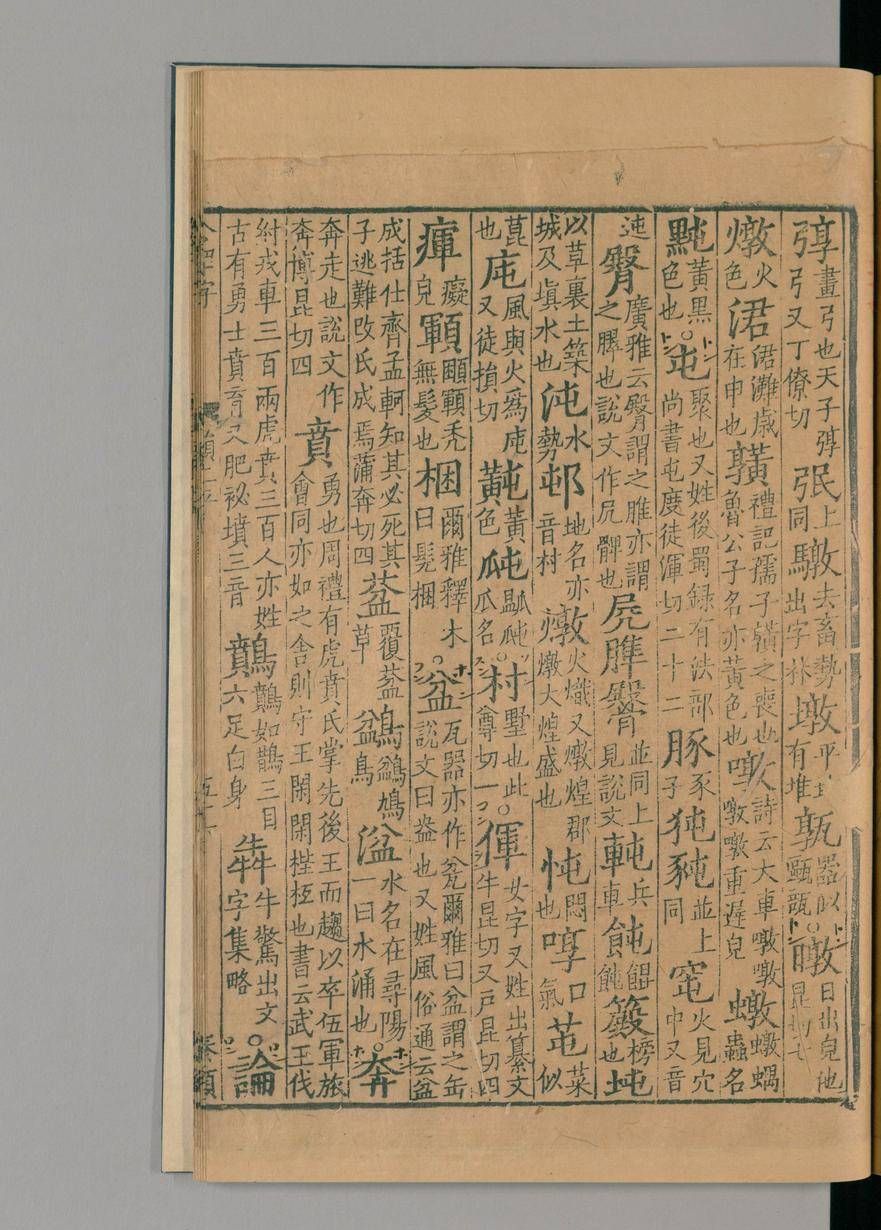 弴畫弓也天子弴弓又丁僚切弤上同驐去畜勢出字林墩平地有堆㼊器似甌瓿○暾日出皃他昆切七
燉火色涒涒灘歲在申也䵍禮記孺子䵍之喪也魯公子名亦黃色也噋詩云大車噋噋噋噋重遲皃蜳蟲名
黗黃黑色也○屯聚也又姓後蜀錄有法部尚書屯度徒渾切二十二豚豕子㹠豘並上同窀火見穴中又音
迍臀廣雅云臀謂之脽亦謂之也說文作髀也並同上見說文軘兵車飩餛飩榜也坉
以草裹土築城及塡水也沌水勢邨地名亦音村燉火熾又燉煌郡燉大煌盛也忳悶也啍口氣芚菜似
莧也庉風與火爲庉又徒損切黃色瓜名○村墅也此尊切一○僤女字又姓出纂文牛昆切又戶昆切四
癡皃顐顐禿無髮也梱爾雅釋木曰髡梱○盆瓦器亦作瓫爾雅曰盆謂之缶說文曰盎也又姓風俗通云盆
成括仕齊孟軻知其必死其子逃難改氏成焉蒲奔切四葐覆葐草鳩鳥湓水名在尋陽一曰水涌也○奔
奔走也說文作奔博昆切四賁勇也周禮有虎賁氏掌先後王而趨以卒伍軍旅會同亦如之舍則守王閑閑梐枑也書云武王伐
紂戎車三百兩虎賁三百人亦姓古有勇士賁育又肥祕墳三音鷬鷬如鵲三目六足白身犇牛驚出文字集略○論